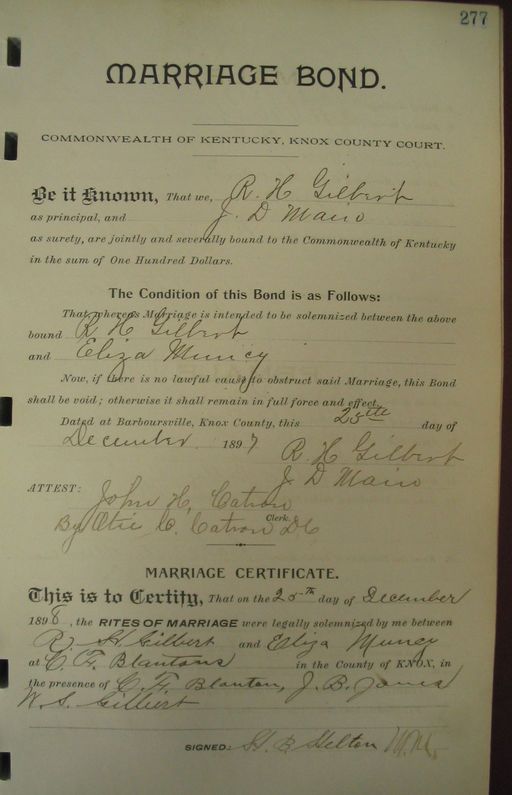 277
MARRIAGE BOND.
COMMONWEALTH OF KENTUCKY, KNOX COUNTY COURT.
Be it Known, That we, R. H Gilbert
as principal, and J. D Main
as surety, are jointly and severally bound to the Commonwealth of Kentucky
in the sum of One Hundred Dollars.
The Condition of this Bond is as Follows:
That whereas Marriage is intended to be solemnized between the above
bound R H Gilbert
and Eliza Muncy
Now, if there is no lawful cause to obstruct said Marriage, this Bond
shall be void; otherwise it shall remain in full force and effect.
Dated at Barboursville, Knox County, this 25th day of
December 1897
R. H Gilbert
J. D Main
ATTEST: John H. Catron
Clerk.
By Otis C. Catron DC
MARRIAGE CERTIFICATE.
This is to Certify, That on the 25th day of December
1898, the RITES OF MARRIAGE were legally solemnized by me between
R. H Gilbert and Eliza Muncy
at C. F. Blantons in the County of KNOX, in
the presence of C. F. Blanton, J. B. Jones
W. S. Gilbert
SIGNED: H. B Helton M.G.